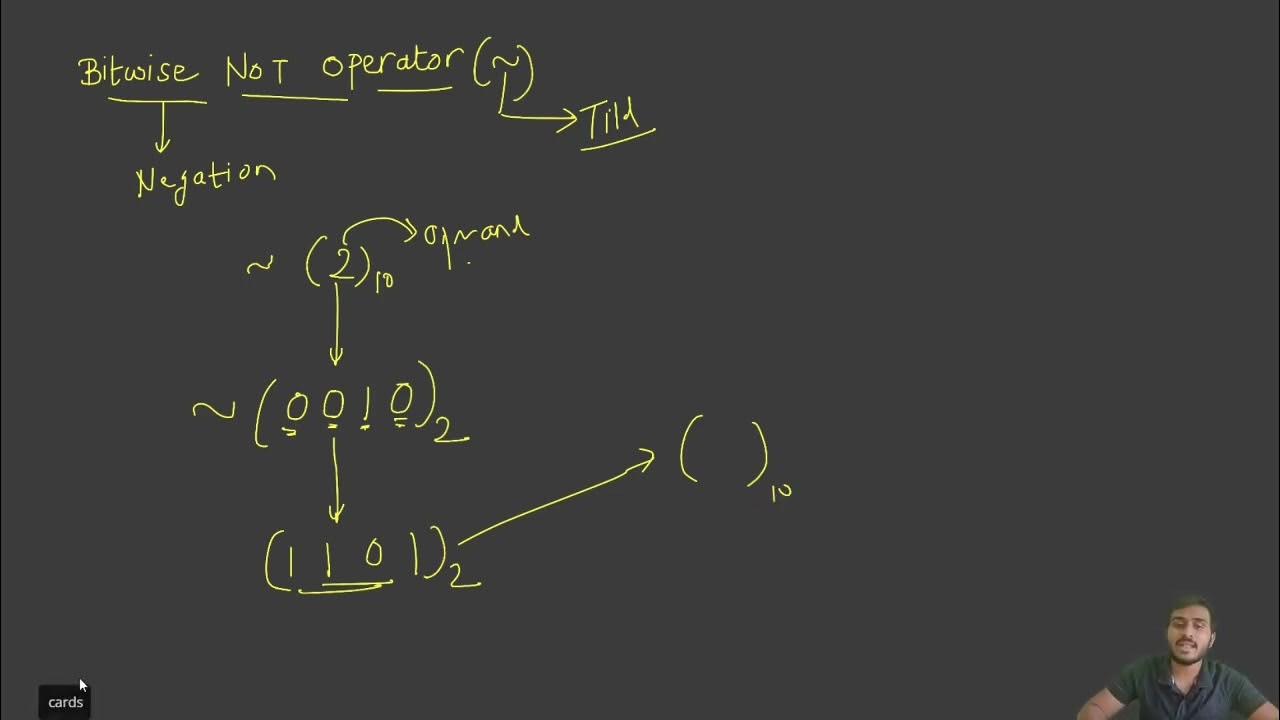 Bitwise NOT Operator (~)
Tild
Negation
~ (2)10
operand
~ (0010)2
( )10
(1101)2
cards